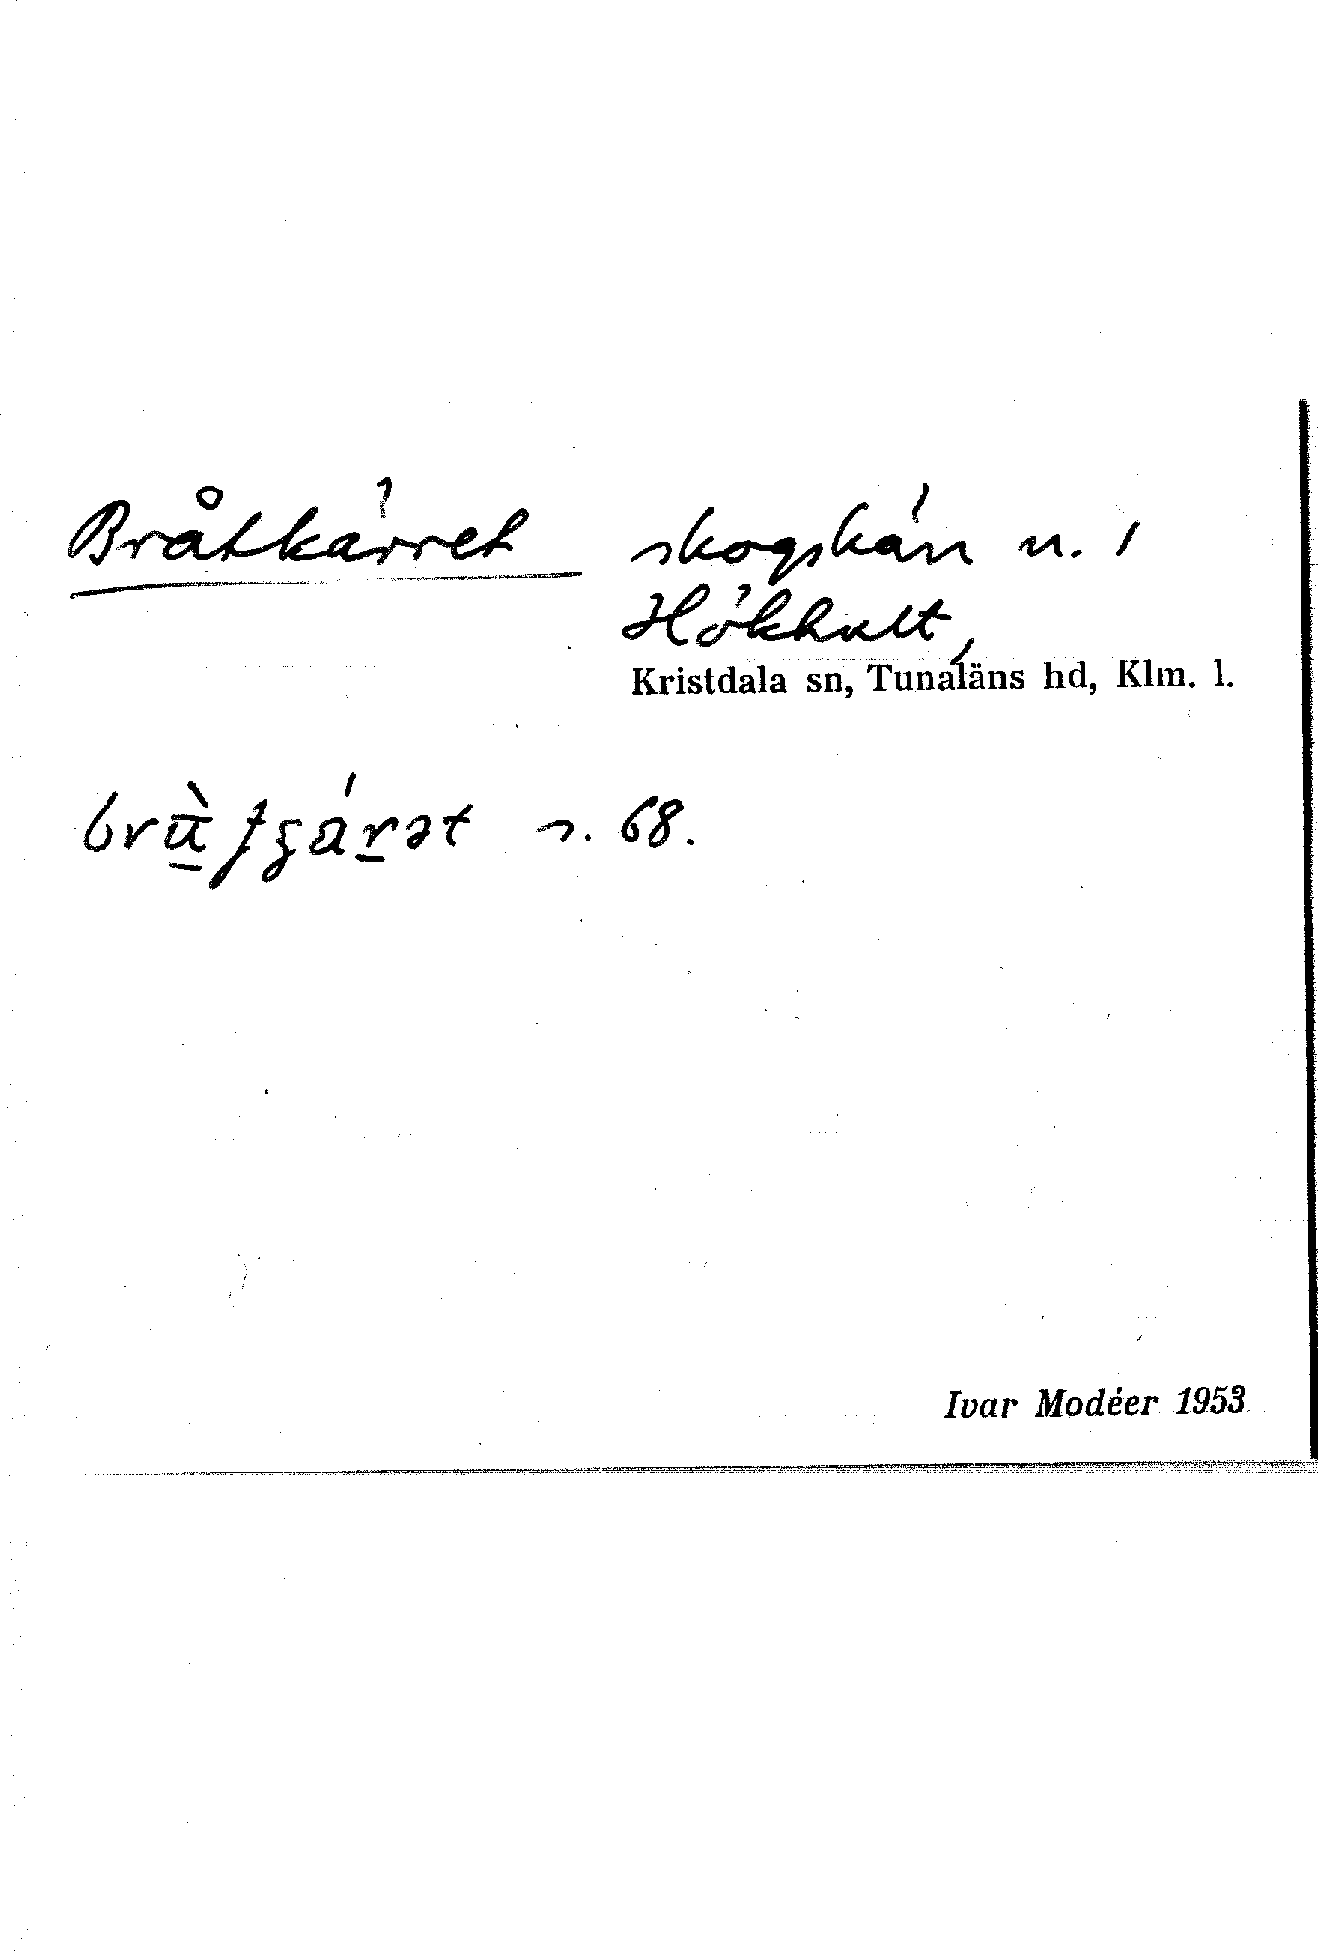 Bråtkärret skogskärr n. 1
Hökhult,
Kristdala sn, Tunaläns hd, Klm. l.
s. 68.
Ivar Modéer 1953